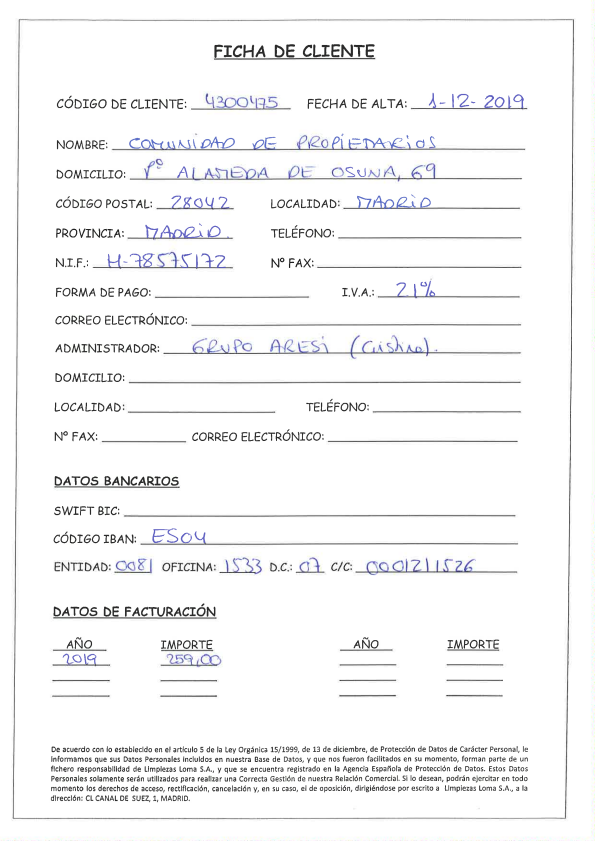 FICHA DE CLIENTE
CÓDIGO DE CLIENTE: 4300475 FECHA DE ALTA: 1-12-2019
NOMBRE: COMUNIDAD DE PROPIETARIOS
DOMICILIO: Pº ALAMEDA DE OSUNA, 69
CÓDIGO POSTAL: 28042 LOCALIDAD: MADRID
PROVINCIA: MADRID. TELÉFONO:
N.I.F.: H-78575172 Nº FAX:
FORMA DE PAGO: I.V.A.: 21%
CORREO ELECTRÓNICO:
ADMINISTRADOR: GRUPO ARESI (Cristina).
DOMICILIO:
LOCALIDAD: TELÉFONO:
Nº FAX: CORREO ELECTRÓNICO:
DATOS BANCARIOS
SWIFT BIC:
CÓDIGO IBAN: ES04
ENTIDAD: 0081 OFICINA: 1533 D.C.: 07 C/C: 0001211526
DATOS DE FACTURACIÓN
AÑO IMPORTE AÑO IMPORTE
2019 259,00
De acuerdo con lo establecido en el artículo 5 de la Ley Orgánica 15/1999, de 13 de diciembre, de Protección de Datos de Carácter Personal, le
informamos que sus Datos Personales incluidos en nuestra Base de Datos, y que nos fueron facilitados en su momento, forman parte de un
fichero responsabilidad de Limpiezas Loma S.A., y que se encuentra registrado en la Agencia Española de Protección de Datos. Estos Datos
Personales solamente serán utilizados para realizar una Correcta Gestión de nuestra Relación Comercial. Si lo desean, podrán ejercitar en todo
momento los derechos de acceso, rectificación, cancelación y, en su caso, el de oposición, dirigiéndose por escrito a Limpiezas Loma S.A., a la
dirección: CL CANAL DE SUEZ, 1, MADRID.